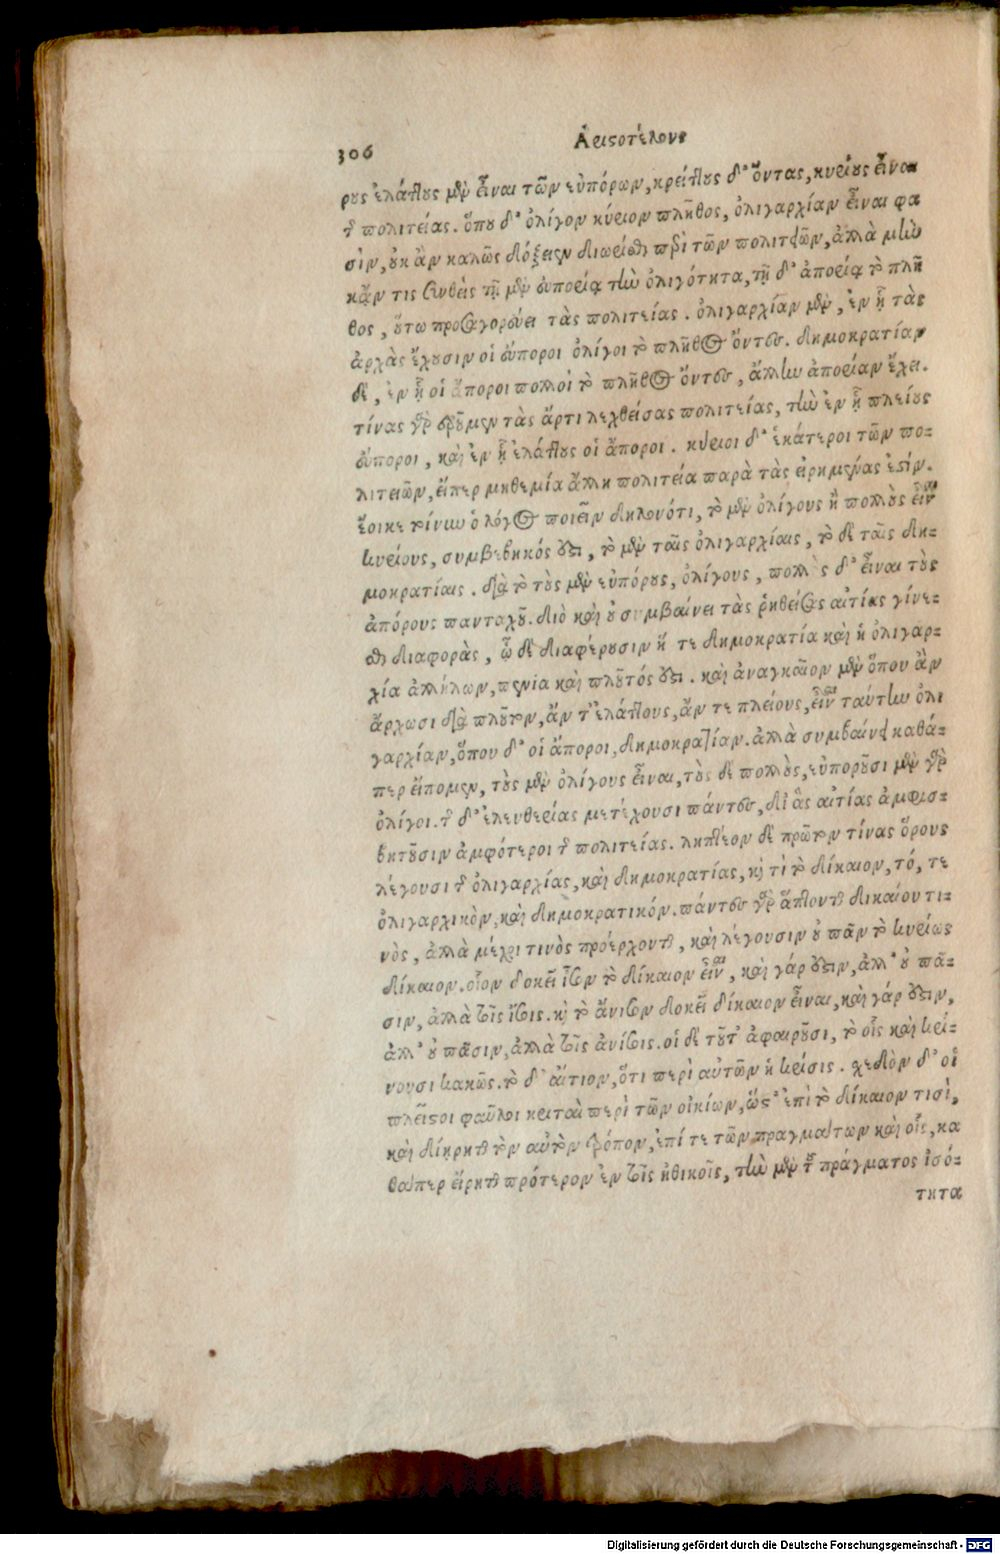 306
Ἀριστοτέλους
ρους ἐλάττους μὲν εἶναι τῶν εὐπόρων, κρείττους δ' ὄντας, κυρίους εἶναι
τῆς πολιτείας. ὅπου δ' ὀλίγον κύριον πλῆθος, ὀλιγαρχίαν εἶναι φα
σὶν, οὐκ ἂν καλῶς δόξειεν διωρίσθαι περὶ τῶν πολιτειῶν, ἀλλὰ μὴν
κἄν τις συνθεὶς τῇ μὲν εὐπορίᾳ τὴν ὀλιγότητα, τῇ δ' ἀπορίᾳ τὸ πλῆ
θος, οὕτω προσαγορεύει τὰς πολιτείας. ὀλιγαρχίαν μὲν, ἐν ᾗ τὰς
ἀρχὰς ἔχουσιν οἱ εὔποροι ὀλίγοι τὸ πλῆθος ὄντες. δημοκρατίαν
δὲ, ἐν ᾗ οἱ ἄποροι πολλοὶ τὸ πλῆθος ὄντες, ἄλλην ἀπορίαν ἔχει.
τίνας γὰρ ἐροῦμεν τὰς ἄρτι λεχθείσας πολιτείας, τὴν ἐν ᾗ πλείους
εὔποροι, καὶ ἐν ᾗ ἐλάττους οἱ ἄποροι. κύριοι δ' ἑκάτεροι τῶν πο-
λιτειῶν, εἴπερ μηθεμία ἄλλη πολιτεία παρὰ τὰς εἰρημένας ἐστίν.
ἔοικε τοίνυν ὁ λόγος ποιεῖν δηλονότι, τὸ μὲν ὀλίγους ἢ πολλοὺς εἶναι
κυρίους, συμβεβηκός ἐστι, τὸ μὲν ταῖς ὀλιγαρχίαις, τὸ δὲ ταῖς δη-
μοκρατίαις. διὰ τὸ τοὺς μὲν εὐπόρους, ὀλίγους, πολλοὺς δ' εἶναι τοὺς
ἀπόρους πανταχοῦ. διὸ καὶ οὐ συμβαίνει τὰς ῥηθείσας αἰτίας γίνε-
σθαι διαφορὰς, ᾧ δὲ διαφέρουσιν ἥ τε δημοκρατία καὶ ἡ ὀλιγαρ-
χία ἀλλήλων, πενία καὶ πλοῦτός ἐστι. καὶ ἀναγκαῖον μὲν ὅπου ἂν
ἄρχωσι διὰ πλοῦτον, ἄν τ' ἐλάττους, ἄν τε πλείους, εἶναι ταύτην ὀλι
γαρχίαν, ὅπου δ' οἱ ἄποροι, δημοκρατίαν. ἀλλὰ συμβαίνει καθά-
περ εἴπομεν, τοὺς μὲν ὀλίγους εἶναι, τοὺς δὲ πολλοὺς, εὐποροῦσι μὲν γὰρ
ὀλίγοι. τῆς δ' ἐλευθερίας μετέχουσι πάντες, δι' ἃς αἰτίας ἀμφισ-
βητοῦσιν ἀμφότεροι τῆς πολιτείας. ληπτέον δὲ πρῶτον τίνας ὅρους
λέγουσι τῆς ὀλιγαρχίας, καὶ δημοκρατίας, καὶ τί τὸ δίκαιον, τό, τε
ὀλιγαρχικὸν, καὶ δημοκρατικόν. πάντες γὰρ ἅπτονται δικαίου τι-
νὸς, ἀλλὰ μέχρι τινὸς προέρχονται, καὶ λέγουσιν οὐ πᾶν τὸ κυρίως
δίκαιον. οἷον δοκεῖ ἴσον τὸ δίκαιον εἶναι, καὶ γάρ ἐστιν, ἀλλ' οὐ πᾶ-
σιν, ἀλλὰ τοῖς ἴσοις. καὶ τὸ ἄνισον δοκεῖ δίκαιον εἶναι, καὶ γάρ ἐστιν,
ἀλλ' οὐ πᾶσιν, ἀλλὰ τοῖς ἀνίσοις. οἱ δὲ τοῦτ' ἀφαιροῦσι, τὸ οἷς καὶ κρί-
νουσι κακῶς. τὸ δ' αἴτιον, ὅτι περὶ αὐτῶν ἡ κρίσις. σχεδὸν δ' οἱ
πλεῖστοι φαῦλοι κριταὶ περὶ τῶν οἰκίων, ὥστ' ἐπὶ τὸ δίκαιον τισὶ,
καὶ διῄρηται τὸν αὐτὸν τρόπον, ἐπί τε τῶν πραγμάτων καὶ οἷς, κα
θάπερ εἴρηται πρότερον ἐν τοῖς ἠθικοῖς, τὴν μὲν τοῦ πράγματος ἰσό-
τητα
Digitalisierung gefördert durch die Deutsche Forschungsgemeinschaft - DFG